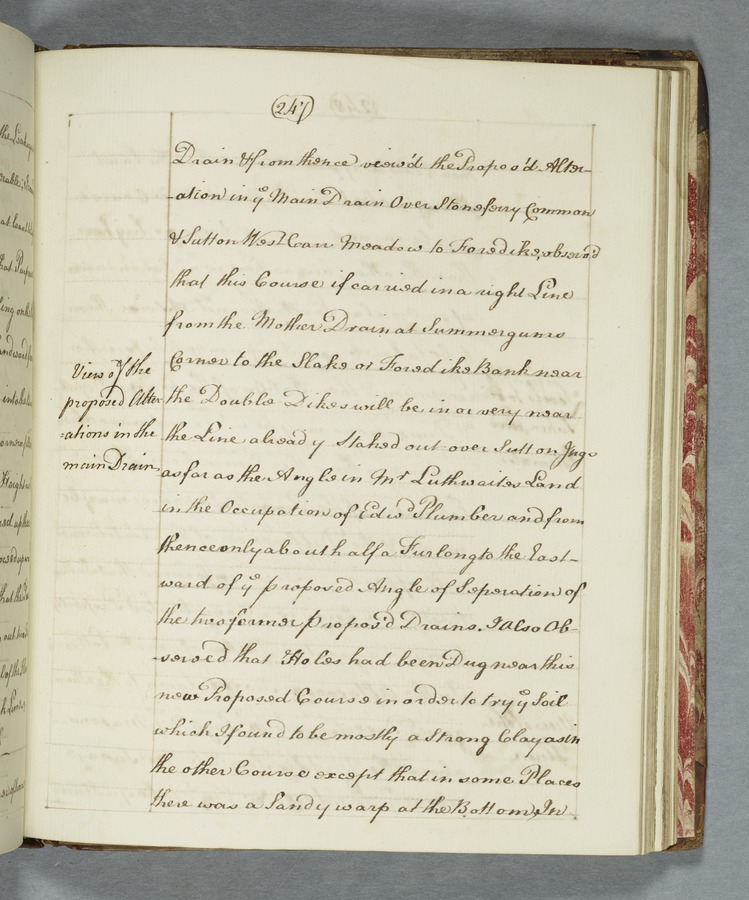 247
Drain & from thence view'd the Propos'd Alter-
-ation in yᵉ Main Drain Over Stoneferry Common
& Sutton West Carr Meadow to Foredike, observ'd
that this Course if carried in a right Line
from the Mother Drain at Summergums
Corner to the Stake or Foredike Bank near
the Double Dikes will be in or very near
the Line already Staked out over Sutton Ings
as far as the Angle in Mʳ Luthwaites Land
in the Occupation of Edwᵈ Plumber and from
thence only about half a Furlong to the East-
ward of yᵉ proposed Angle of Seperation of
the two former propos'd Drains. I Also Ob-
-served that Holes had been Dug near this
new Proposed Course in order to try yᵉ Soil
which I found to be mostly a Strong Clay as in
the other Course except that in some Places
there was a Sandy warp at the Bottom, In
View of the
proposed Alter
-ations in the
main Drain